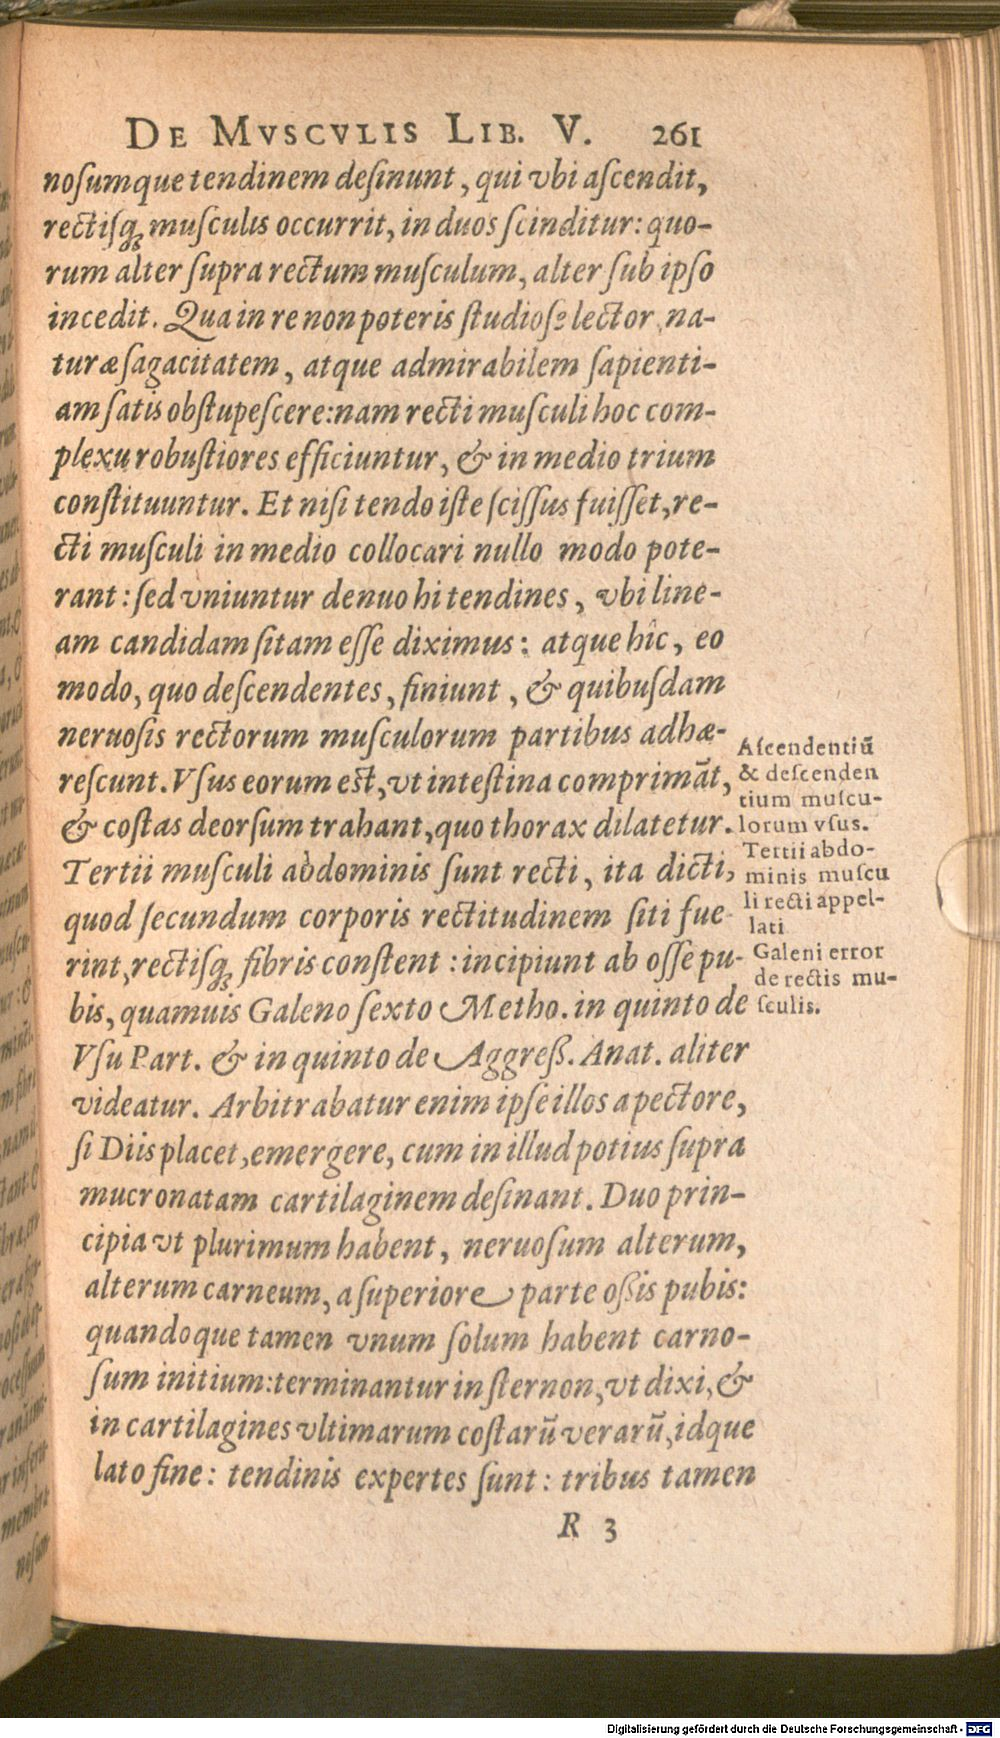 DE MVSCVLIS LIB. V. 261
noſumque tendinem deſinunt, qui vbi aſcendit,
rectiſq; muſculis occurrit, in duos ſcinditur: quo-
rum alter ſupra rectum muſculum, alter ſub ipſo
incedit. Qua in re non poteris ſtudioſe lector, na-
turæ ſagacitatem, atque admirabilem ſapienti-
am ſatis obſtupeſcere: nam recti muſculi hoc com-
plexu robuſtiores efficiuntur, & in medio trium
conſtituuntur. Et niſi tendo iſte ſciſſus fuiſſet, re-
cti muſculi in medio collocari nullo modo pote-
rant: ſed vniuntur denuo hi tendines, vbi line-
am candidam ſitam eſſe diximus: atque hîc, eo
modo, quo deſcendentes, finiunt, & quibuſdam
neruoſis rectorum muſculorum partibus adhæ-
reſcunt. Vſus eorum eſt, vt inteſtina comprimāt,
& coſtas deorſum trahant, quo thorax dilatetur.
Tertii muſculi abdominis ſunt recti, ita dicti,
quod ſecundum corporis rectitudinem ſiti fue-
rint, rectiſq; fibris conſtent: incipiunt ab oſſe pu-
bis, quamuis Galeno ſexto Metho. in quinto de
Vſu Part. & in quinto de Aggreß. Anat. aliter
videatur. Arbitrabatur enim ipſe illos a pectore,
ſi Diis placet, emergere, cum in illud potius ſupra
mucronatam cartilaginem deſinant. Duo prin-
cipia vt plurimum habent, neruoſum alterum,
alterum carneum, a ſuperiore parte oßis pubis:
quandoque tamen vnum ſolum habent carno-
ſum initium: terminantur in ſternon, vt dixi, &
in cartilagines vltimarum coſtarū verarū, idque
lato fine: tendinis expertes ſunt: tribus tamen
R 3
Aſcendentiū
& deſcenden
tium muſcu-
lorum vſus.
Tertii abdo-
minis muſcu
li recti appel-
lati
Galeni error
de rectis mu-
ſculis.
Digitalisierung gefördert durch die Deutsche Forschungsgemeinschaft - DFG